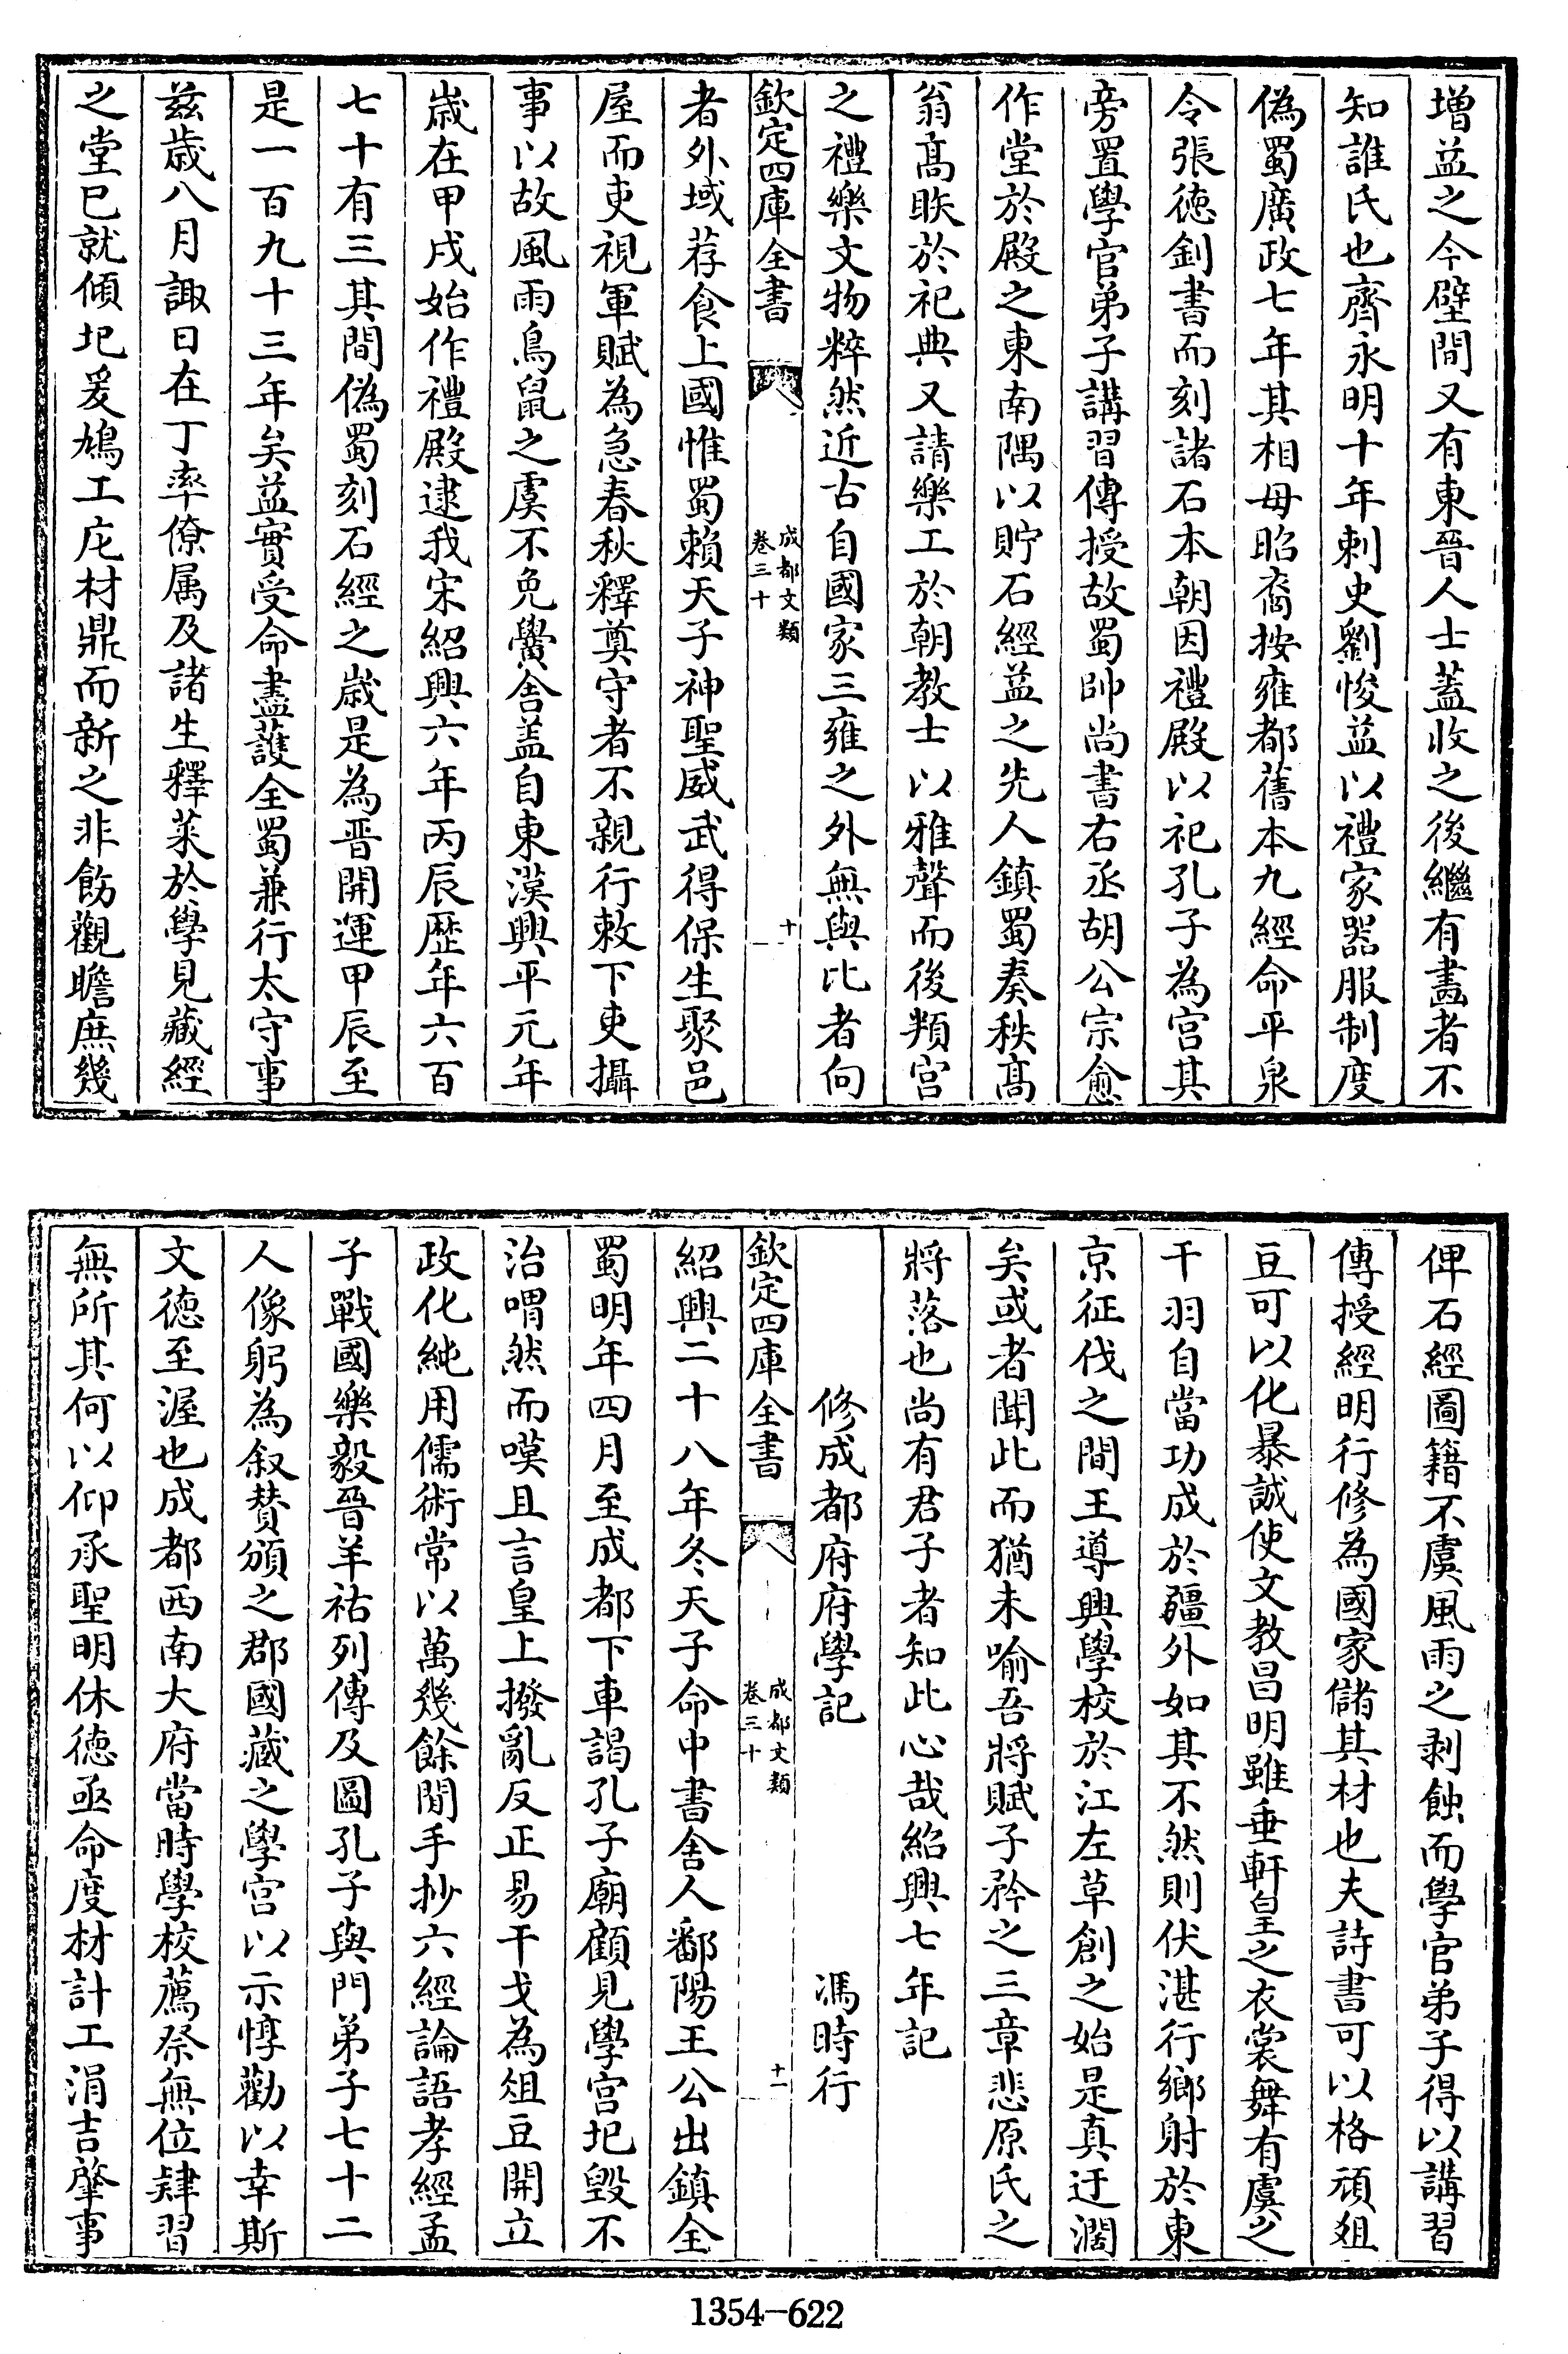 增益之今壁間又有東晉人士蓋收之後繼有畫者不
知誰氏也齊永明十年刺史劉悛益以禮家器服制度
偽蜀廣政七年其相毋昭裔按雍都舊本九經命平泉
令張徳釗書而刻諸石本朝因禮殿以祀孔子為宫其
旁置學官弟子講習傳授故蜀帥尚書右丞胡公宗愈
作堂於殿之東南隅以貯石經益之先人鎮蜀奏秩髙
翁髙眹於祀典又請樂工於朝教士以雅聲而後頖宫
之禮樂文物粹然近古自國家三雍之外無與比者向
欽定四庫全書
成都文類
卷三十
十一
者外域荐食上國惟蜀賴天子神聖威武得保生聚邑
屋而吏視軍賦為急春秋釋奠守者不親行敕下吏攝
事以故風雨鳥鼠之虞不免黌舍盖自東漢興平元年
歳在甲戌始作禮殿逮我宋紹興六年丙辰歴年六百
七十有三其間偽蜀刻石經之嵗是為晋開運甲辰至
是一百九十三年矣益實受命盡䕶全蜀兼行太守事
兹歳八月諏日在丁率僚属及諸生釋菜於學見藏經
之堂已就傾圯爰鳩工庀材鼎而新之非飭觀瞻庶幾
俾石經圖籍不虞風雨之剥蝕而學官弟子得以講習
傳授經明行修為國家儲其材也夫詩書可以格頑俎
豆可以化暴誠使文教昌明雖垂軒皇之衣裳舞有虞之
干羽自當功成於疆外如其不然則伏湛行鄉射於東
京征伐之間王導興學校於江左草創之始是真迂濶
矣或者聞此而猶未喻吾將賦子矜之三章悲原氏之
將落也尚有君子者知此心哉紹興七年記
修成都府府學記 馮時行
欽定四庫全書
成都文類
卷三十
十一
紹興二十八年冬天子命中書舍人鄱陽王公出鎮全
蜀明年四月至成都下車謁孔子廟顧見學宫圯毁不
治喟然而嘆且言皇上撥亂反正易干戈為俎豆開立
政化純用儒術常以萬幾餘閒手抄六經論語孝經孟
子戰國樂毅晉羊祜列傳及圖孔子與門弟子七十二
人像躬為叙賛頒之郡國藏之學宫以示惇勸以幸斯
文徳至渥也成都西南大府當時學校薦祭無位肄習
無所其何以仰承聖明休徳亟命度材計工涓吉肇事
1354-622